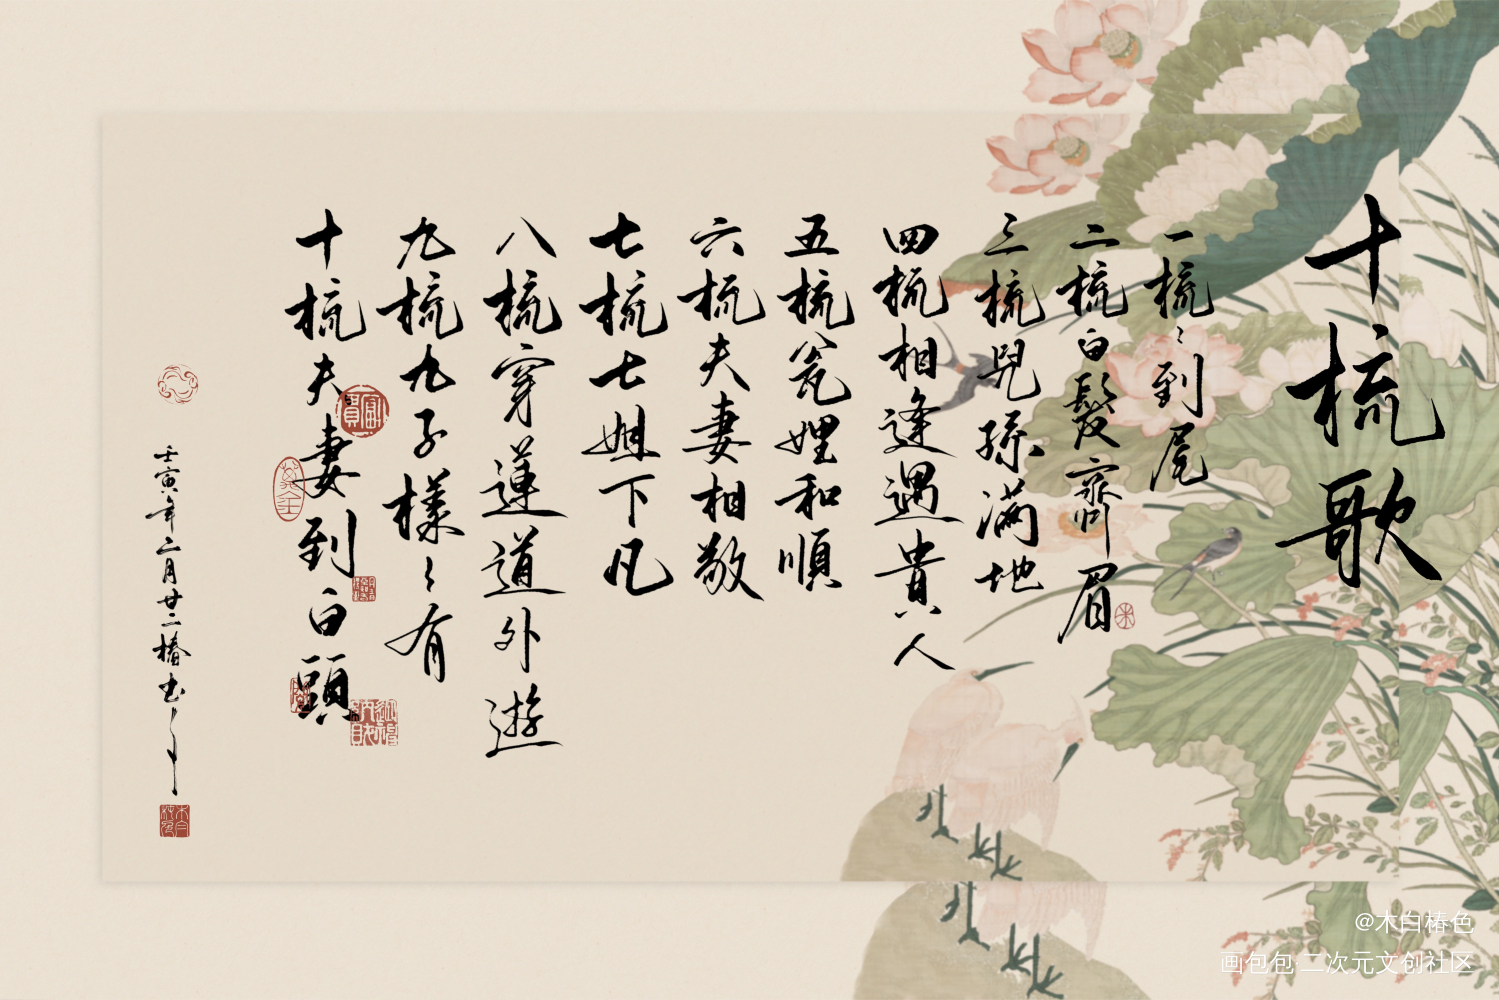 十梳歌
一梳〻到尾
二梳白髮齊眉
三梳兒孫滿地
四梳相逢遇貴人
五梳瓮娌和順
六梳夫妻相敬
七梳七姐下凡
八梳穿蓮道外遊
九梳九子樣〻有
十梳夫妻到白頭
壬寅年二月廿二椿书
富貴
@木白椿色
画包包·二次元文创社区